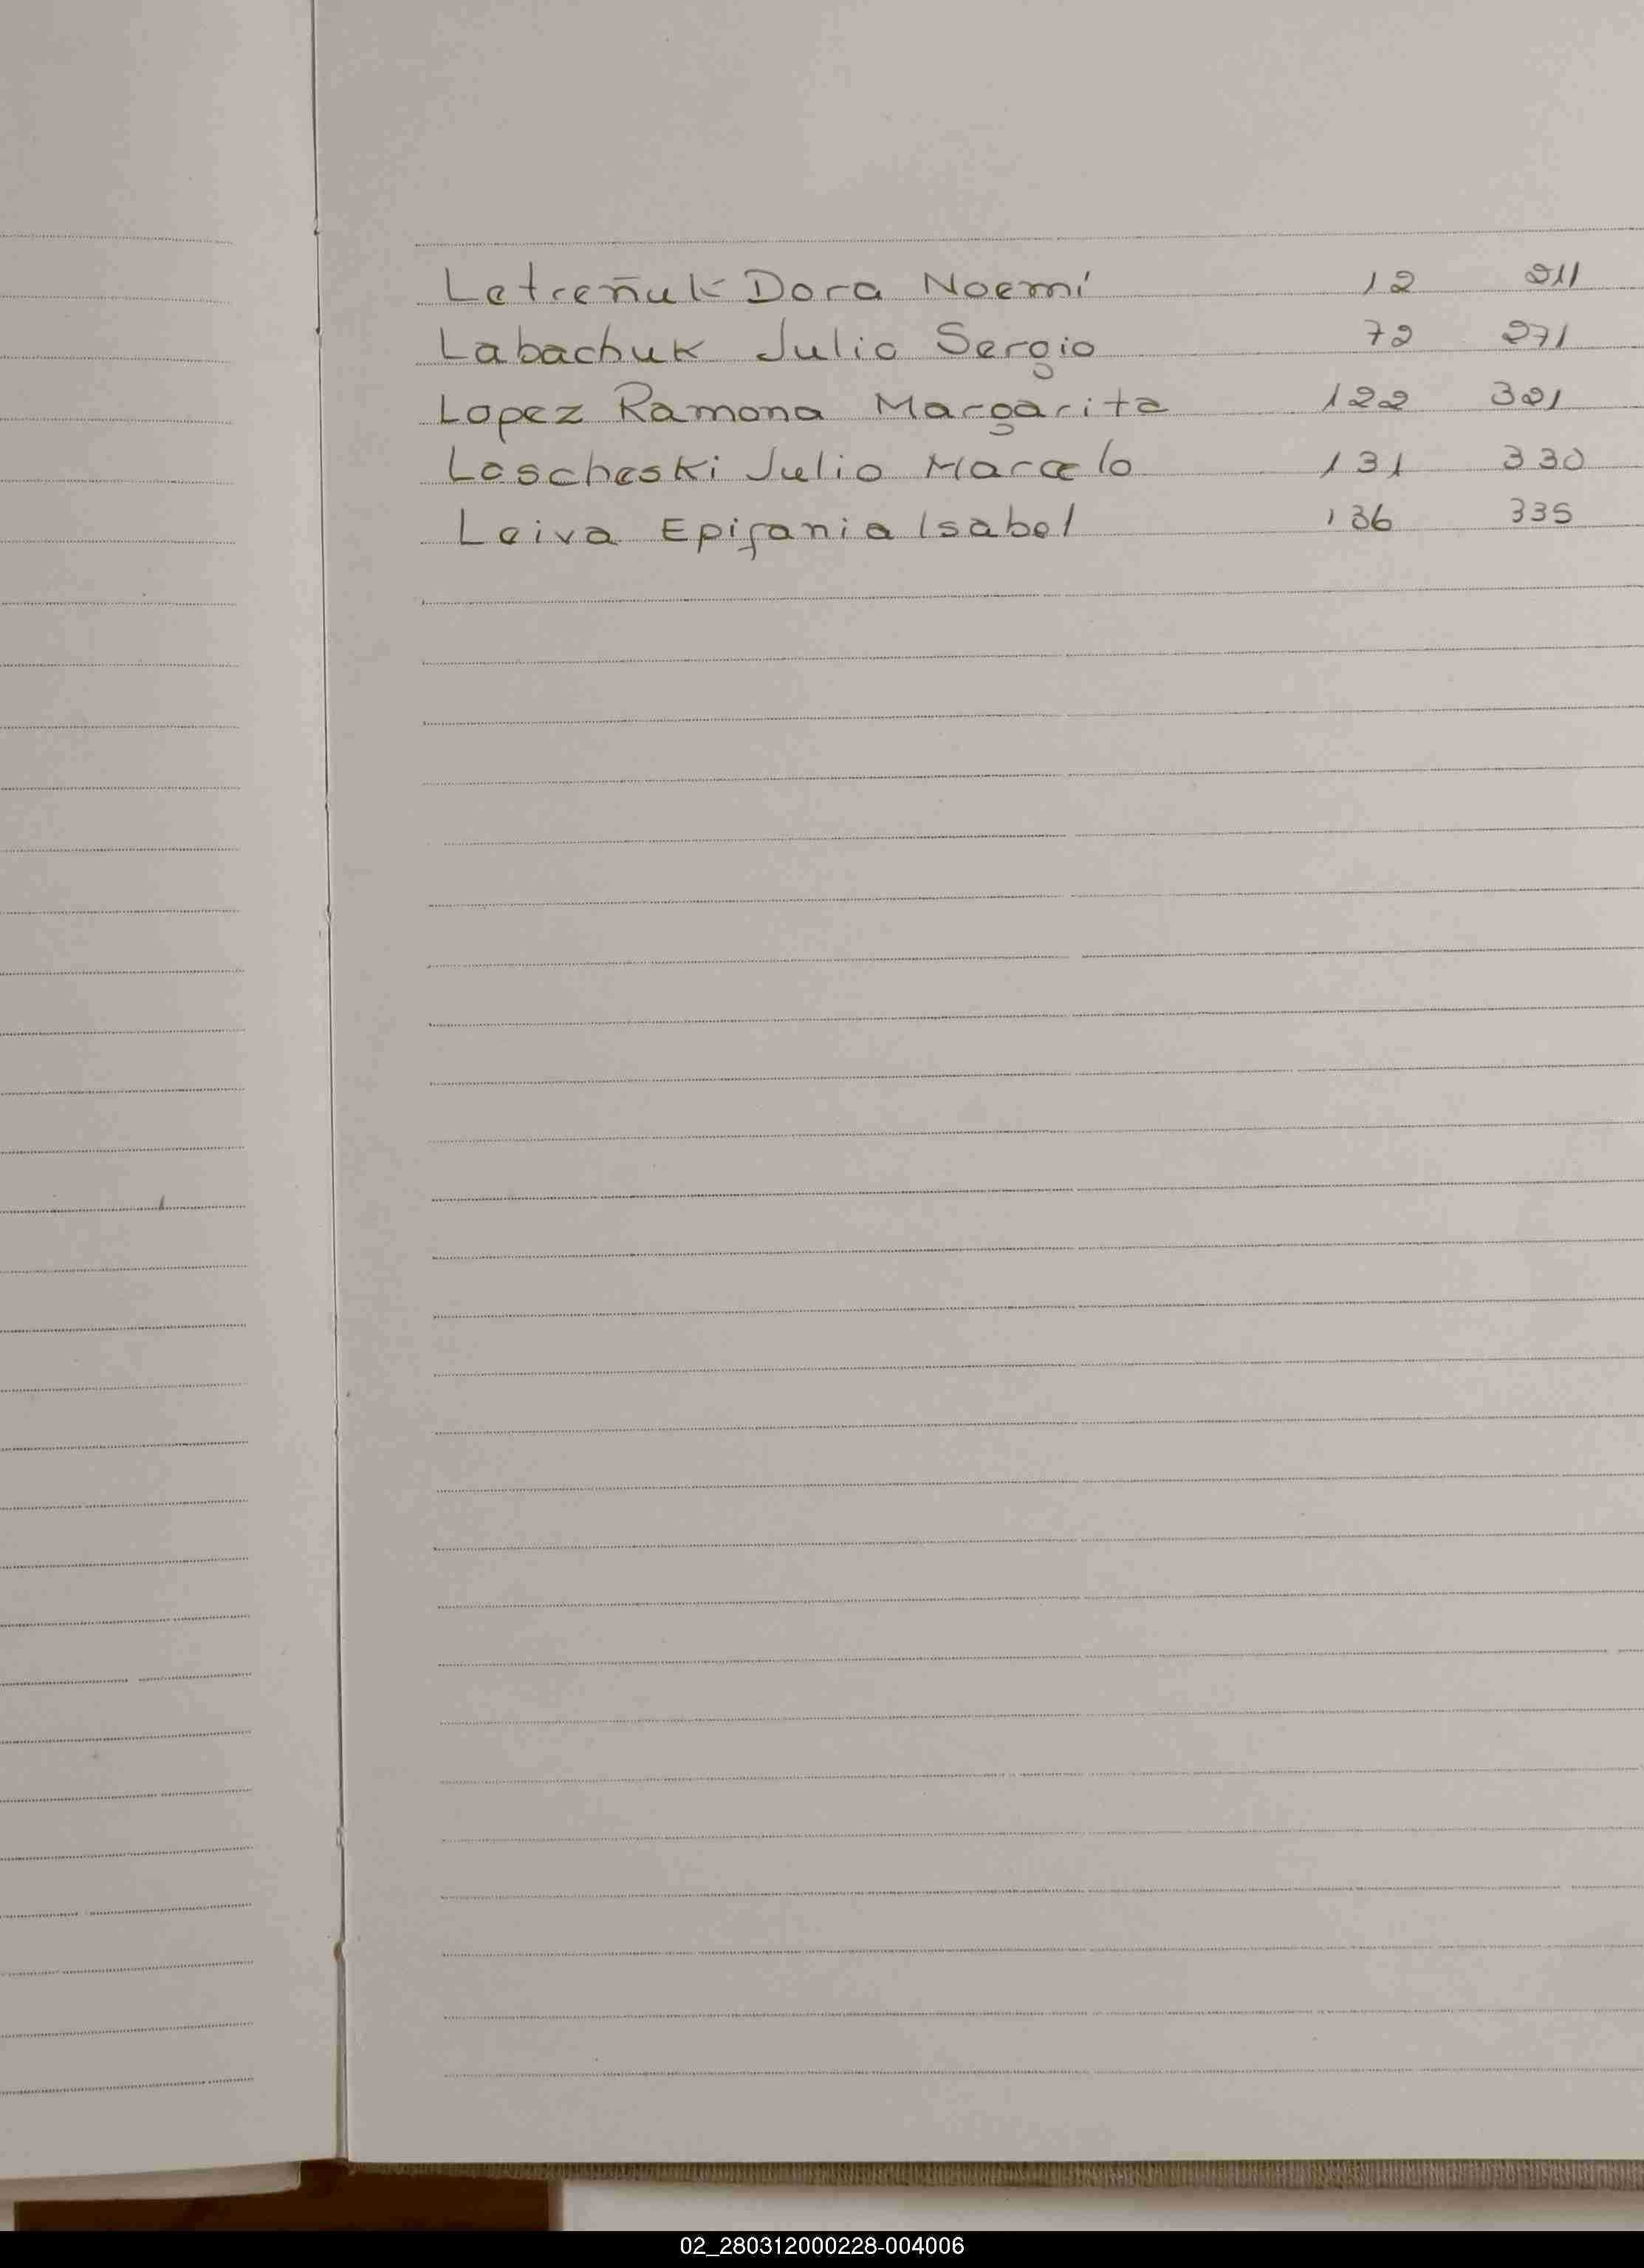 Letreñuk Dora Noemí 12 211
Labachuk Julio Sergio 72 271
Lopez Ramona Margarita 122 321
Loscheski Julio Marcelo 131 330
Leiva Epifania Isabel 136 335
02_280312000228-004006